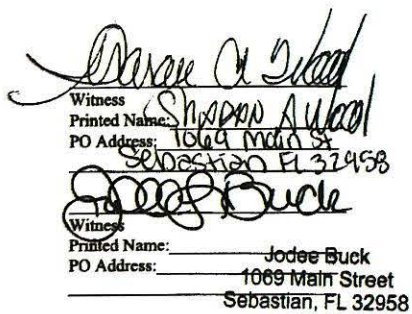 Sharon A Wood
Witness
Printed Name: Sharon A Wood
PO Address: 1069 Main St
Sebastian FL 32958
Jodee Buck
Witness
Printed Name: Jodee Buck
PO Address: 1069 Main Street
Sebastian, FL 32958